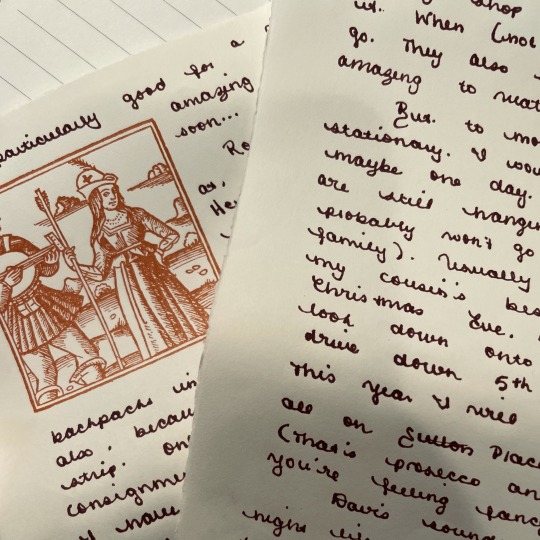 particularly good for a
amazing
soon...
as,
backpacks
also, becau
strip. on
consignme
I have
shop
it. When (not
go. They also
amazing to
But. to mo
stationary. I wou
maybe one day.
are still hangin
probably won't go
family). Usually
my cousin's bes
Christmas Eve.
look down onto
drive down 5th
This year I will
all on Sutton Place
(that's prosecco an
you're feeling fanc
Davis sound
night